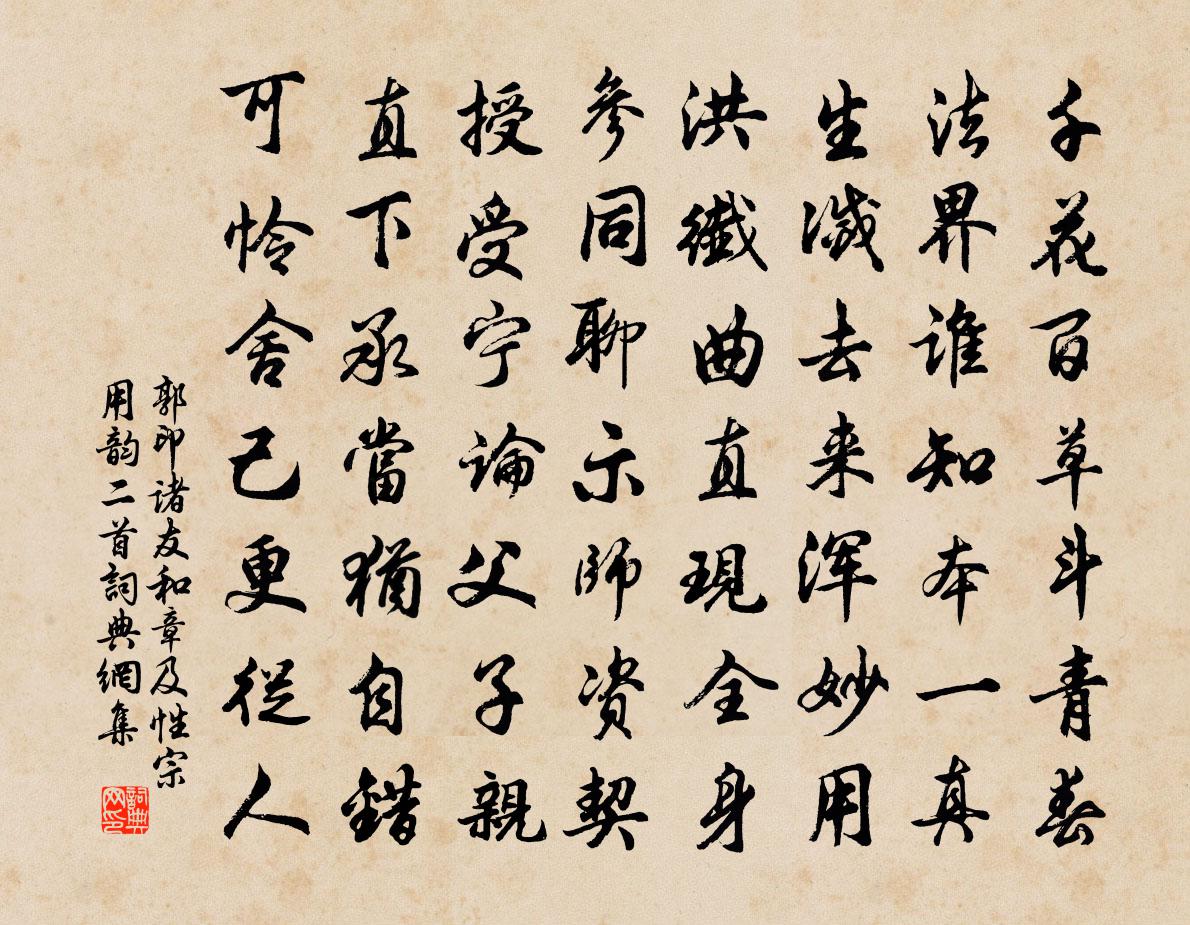 千花百草斗青春
法界谁知本一真
生滅去来浑妙用
洪纖曲直現全身
參同聊示師资契
授受宁論父子親
直下承當猶自錯
可怜舍己更從人
郭印诸友和章及性宗
用韵二首詞典網集
詞典
网印